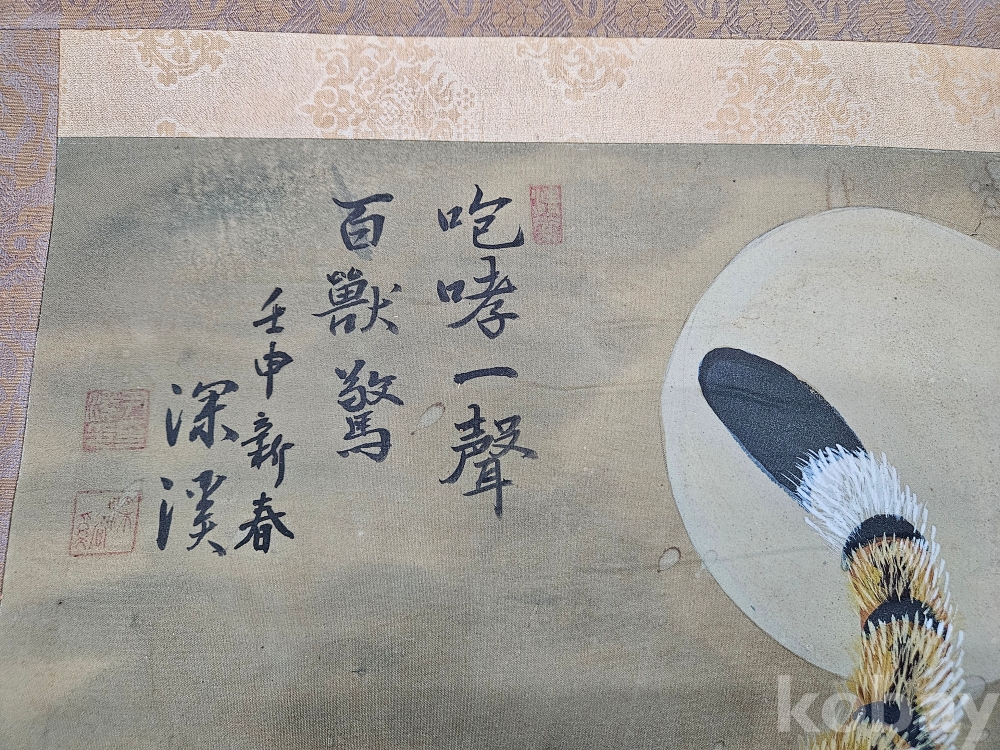 咆哮一聲
百獸驚
壬申新春
深溪
kobay